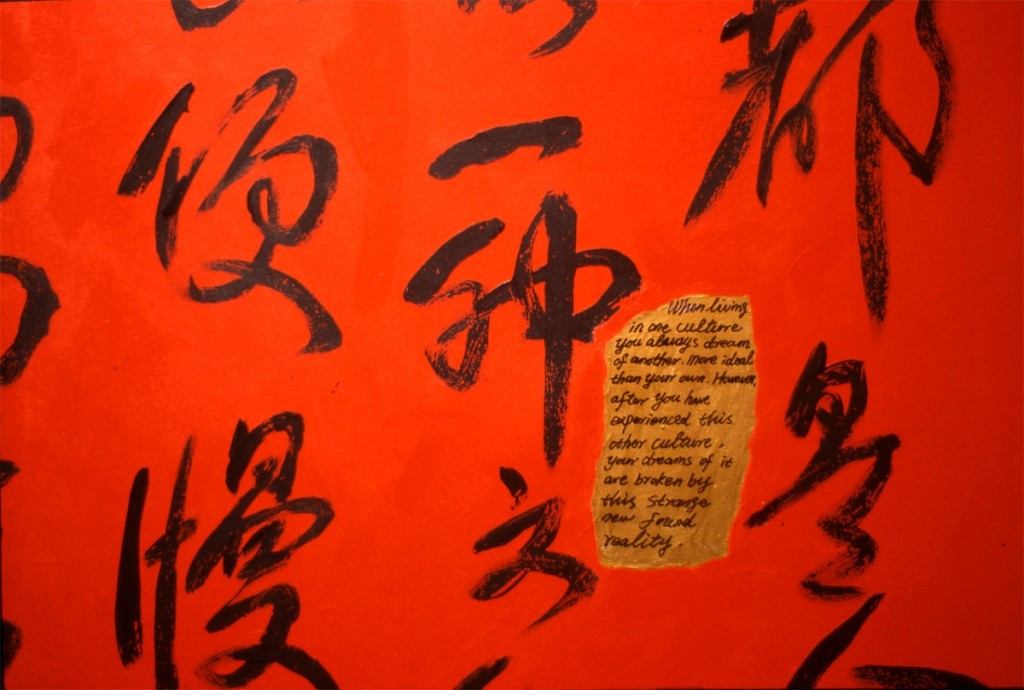 都是
一种文
便慢
When living
in one culture
you always dream
of another. more ideal
than your own. However,
after you have
experienced this
other culture,
your dreams of it
are broken by
this strange
new found
reality.